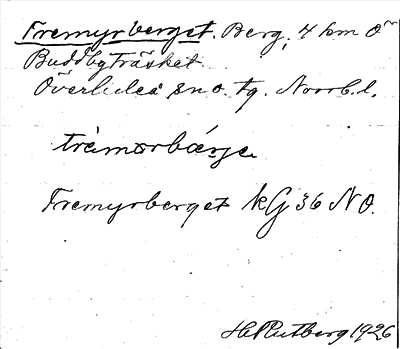 Fremyrberget. Berg, 4 km Ö
Buddbyträsket.
Överluleå sn o. tg. Norrb. l.
tre̍mørbær̨je
Fremyrberget kGj 36 NO.
H Rutberg 1926